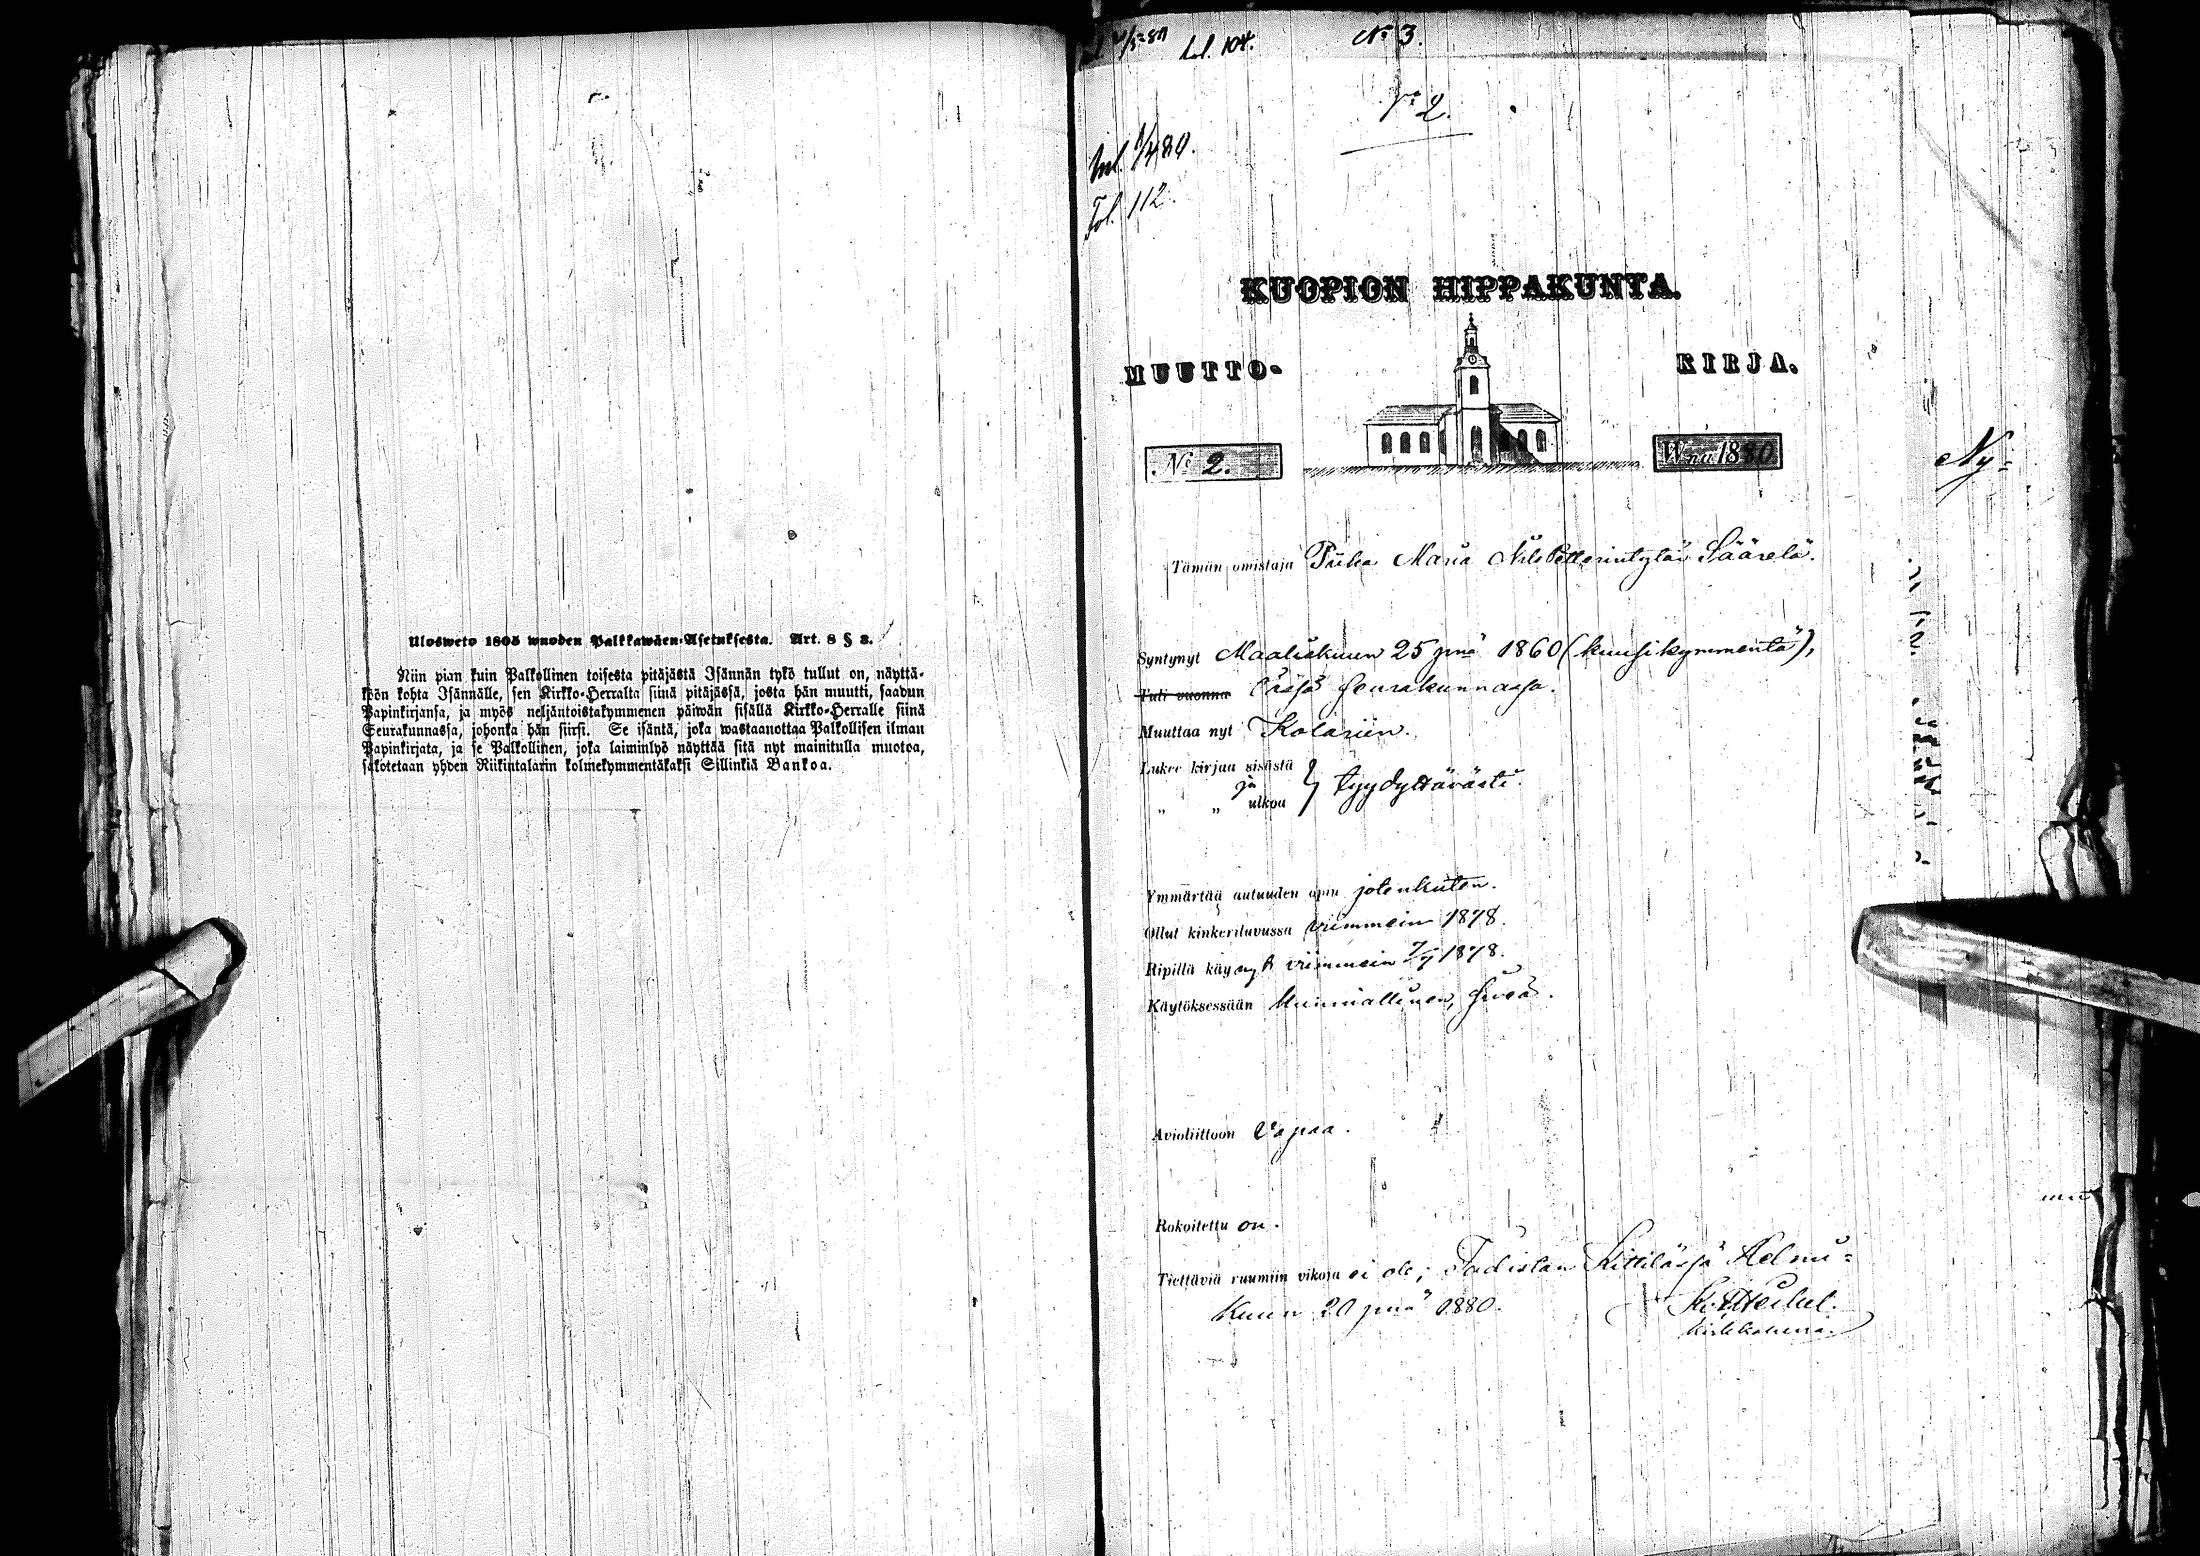 Ulosweto 1805 wuoden Palkkawäen-Asetuksesta. Art. 8 § 3.
Niin pian kuin Palkollinen toisesta pitäjästä Isännän tykö tullut on, näyttä-
köön kohta Isännälle, sen Kirkko-Herralta siinä pitäjässä, josta hän muutti, saadun
Papinkirjansa, ja myös neljäntoistakymmenen päiwän sisällä Kirkko-Herralle siinä
Seurakunnassa, johonka hän siirsi. Se isäntä, joka wastaanottaa Palkollisen ilman
Papinkirjata, ja se Palkollinen, joka laiminlyö näyttää sitä nyt mainitulla muotoa,
sakotetaan yhden Riikintalarin kolmekymmentäkaksi Sillinkiä Bankoa.
fol. 104. No 3.
No 2.
Inl. 1/4 80.
Fol. 112.
KUOPION HIPPAKUNTA.
MUUTTO- KIRJA.
No 2. W:na 1880
Tämän omistaja Piika Maria Nils Petterintytär Säärelä.
Syntynyt Maaliskuun 25 pnä 1860 (kuusikymmentä),
Tuli vuonna tässä seurakunnassa.
Muuttaa nyt Kolariin.
Lukee kirjaa sisästä
ja } tyydyttävästi.
„ „ ulkoa
Ymmärtää autuuden opin jotenkuten.
Ollut kinkeriluvussa viimmein 1878.
Ripillä käynyt viimmein 7/7 1878.
Käytöksessään kunniallinen, siveä.
Avioliittoon vapaa.
Rokoitettu on.
Tiettäviä ruumiin vikoja ei ole; Todistan Kittilässä Helmi-
kuun 20 pnä 1880.
Kirkkoherra.
Ny-